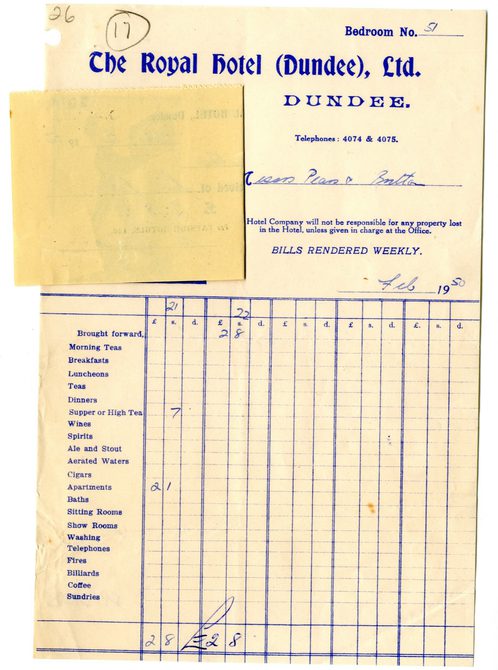 26
17
Bedroom No. 51
The Royal Hotel (Dundee), Ltd.
DUNDEE.
Telephones: 4074 & 4075.
Pears & Britten
Hotel Company will not be responsible for any property lost
in the Hotel, unless given in charge at the Office.
BILLS RENDERED WEEKLY.
Feb 1950
21 22
£ s. d. £ s. d. £ s. d. £ s. d. £ s. d.
Brought forward, 2 8
Morning Teas
Breakfasts
Luncheons
Teas
Dinners
Supper or High Tea 7
Wines
Spirits
Ale and Stout
Aerated Waters
Cigars
Apartments 2 1
Baths
Sitting Rooms
Show Rooms
Washing
Telephones
Fires
Billiards
Coffee
Sundries
2 8 £2 8